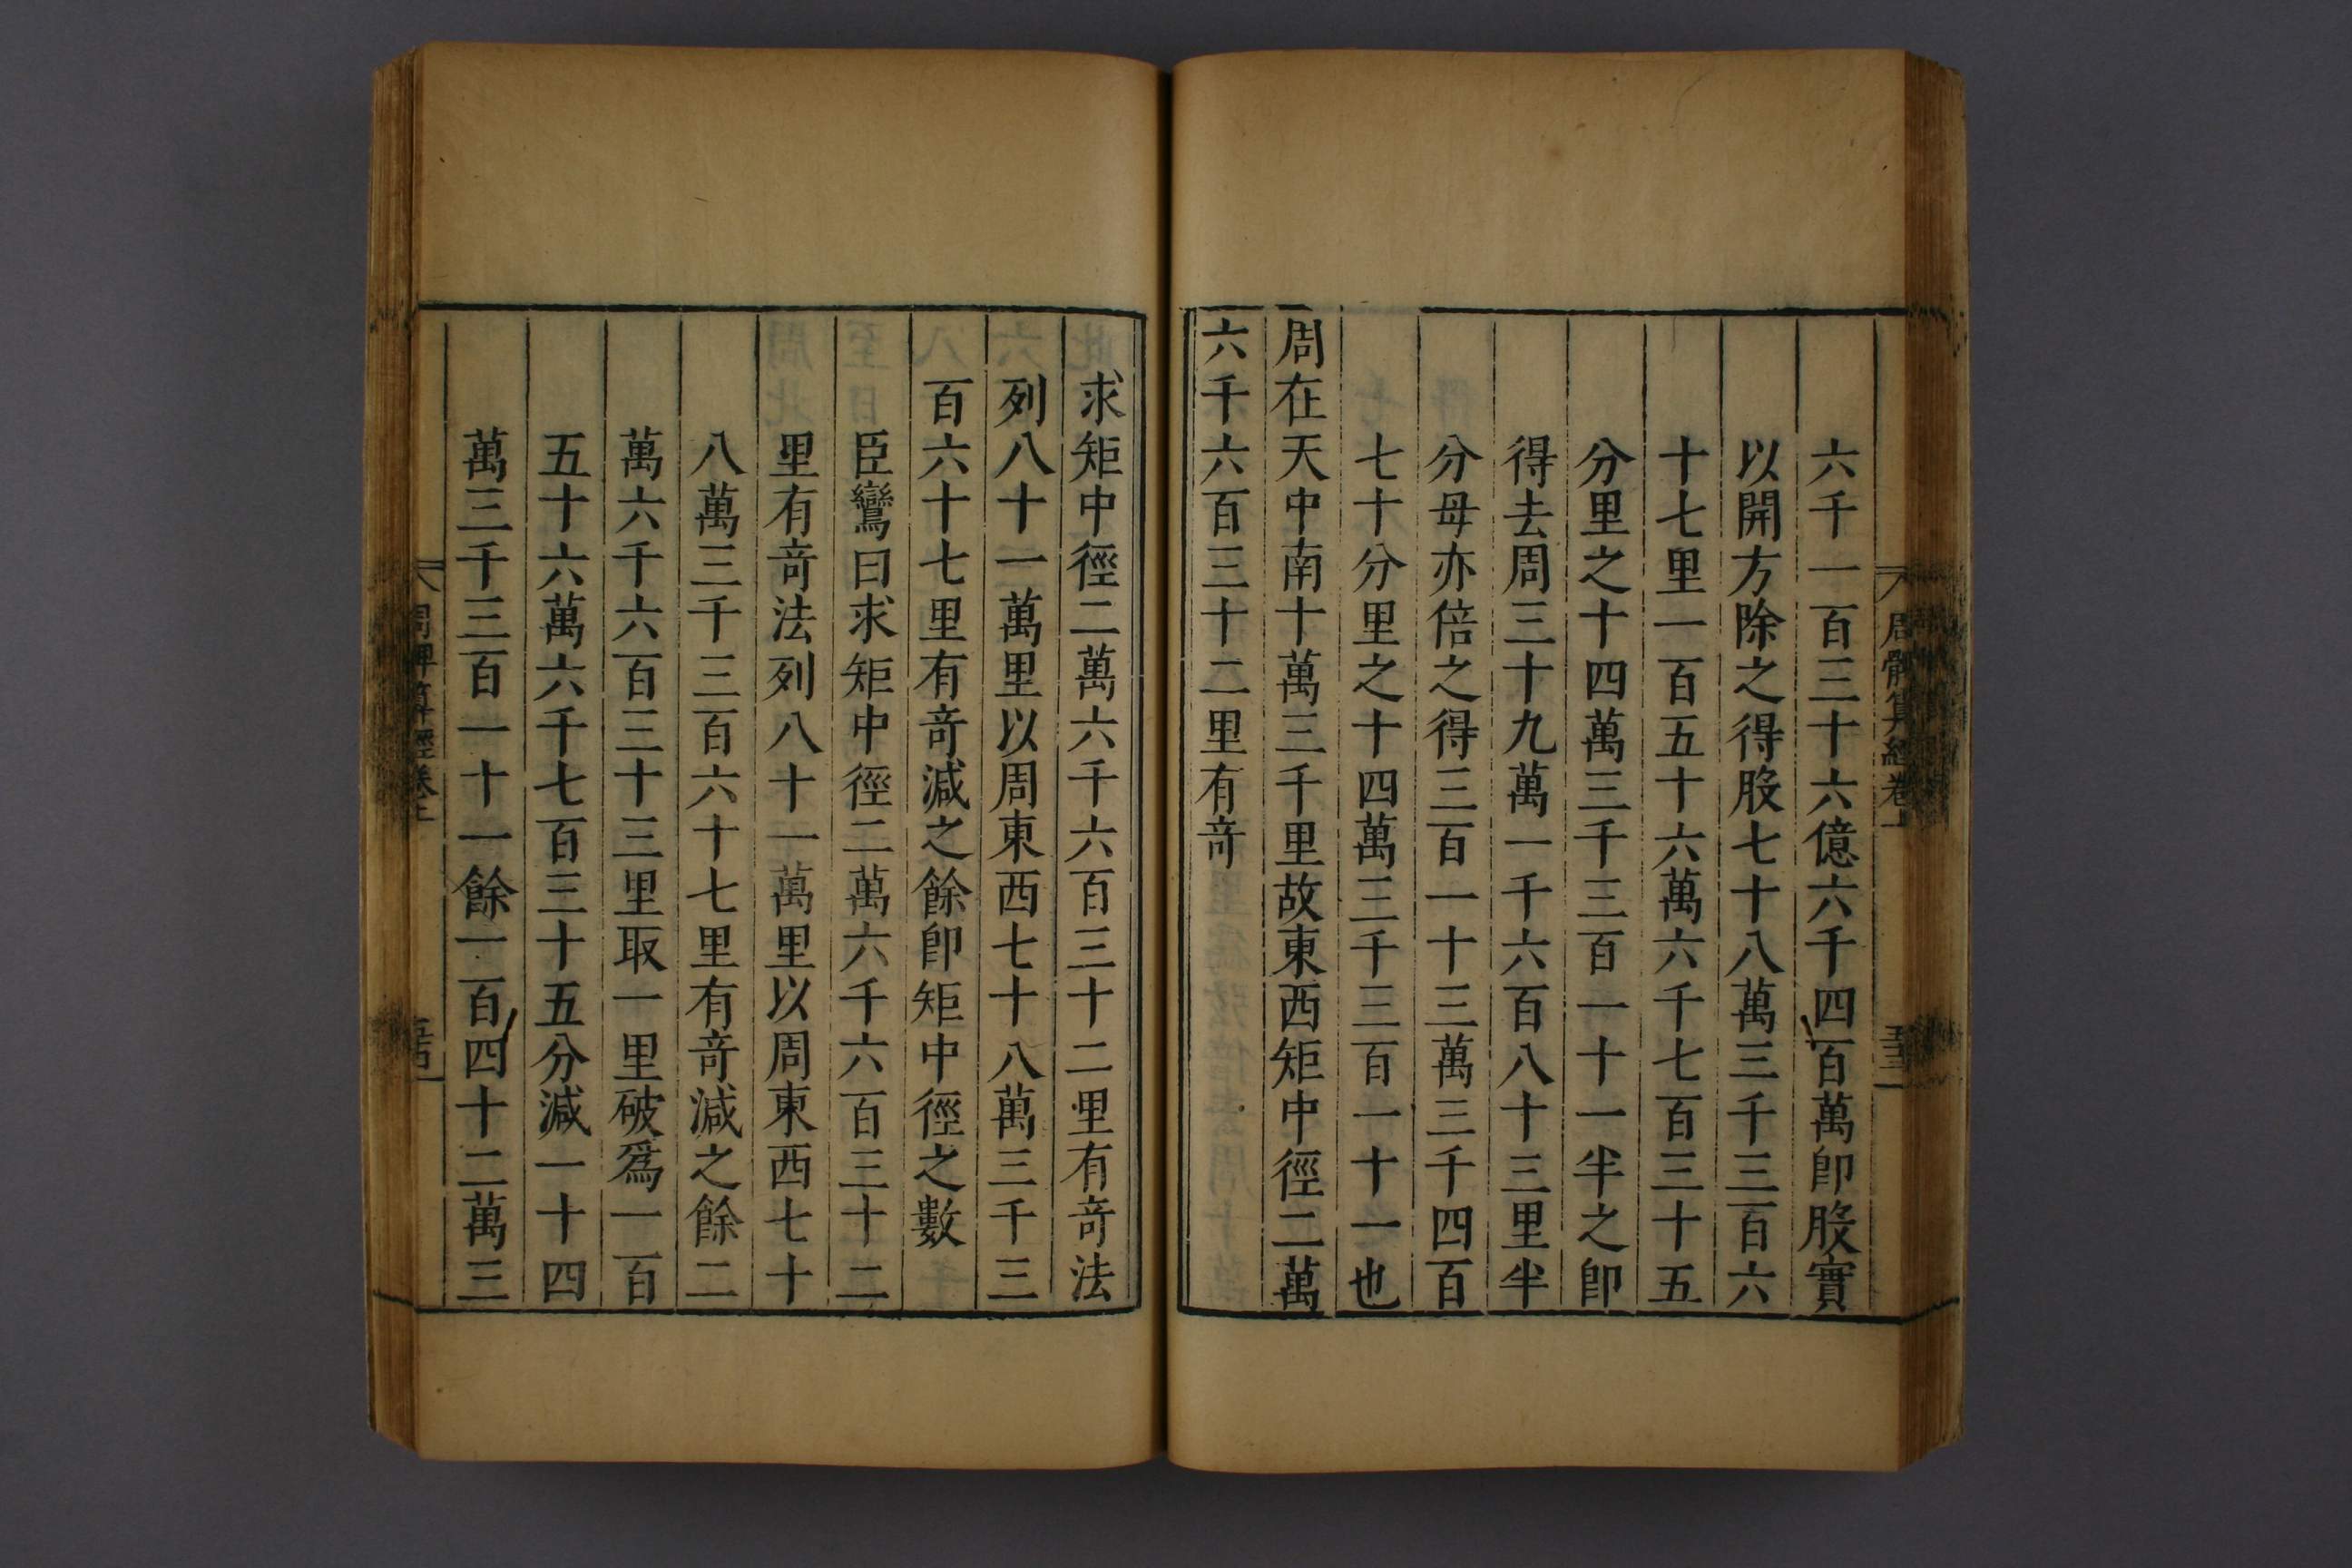 周髀算經卷上
五十三
六千一百三十六億六千四百萬卽股實
以開方除之得股七十八萬三千三百六
十七里一百五十六萬六千七百三十五
分里之十四萬三千三百一十一半之卽
得去周三十九萬一千六百八十三里半
分母亦倍之得三百一十三萬三千四百
七十分里之十四萬三千三百一十一也
周在天中南十萬三千里故東西矩中徑二萬
六千六百三十二里有奇
求矩中徑二萬六千六百三十二里有奇法
列八十一萬里以周東西七十八萬三千三
百六十七里有奇減之餘卽矩中徑之數
臣鸞曰求矩中徑二萬六千六百三十二
里有奇法列八十一萬里以周東西七十
八萬三千三百六十七里有奇減之餘二
萬六千六百三十三里取一里破爲一百
五十六萬六千七百三十五分減一十四
萬三千三百一十一餘一百四十二萬三
周髀算經卷上
五十四